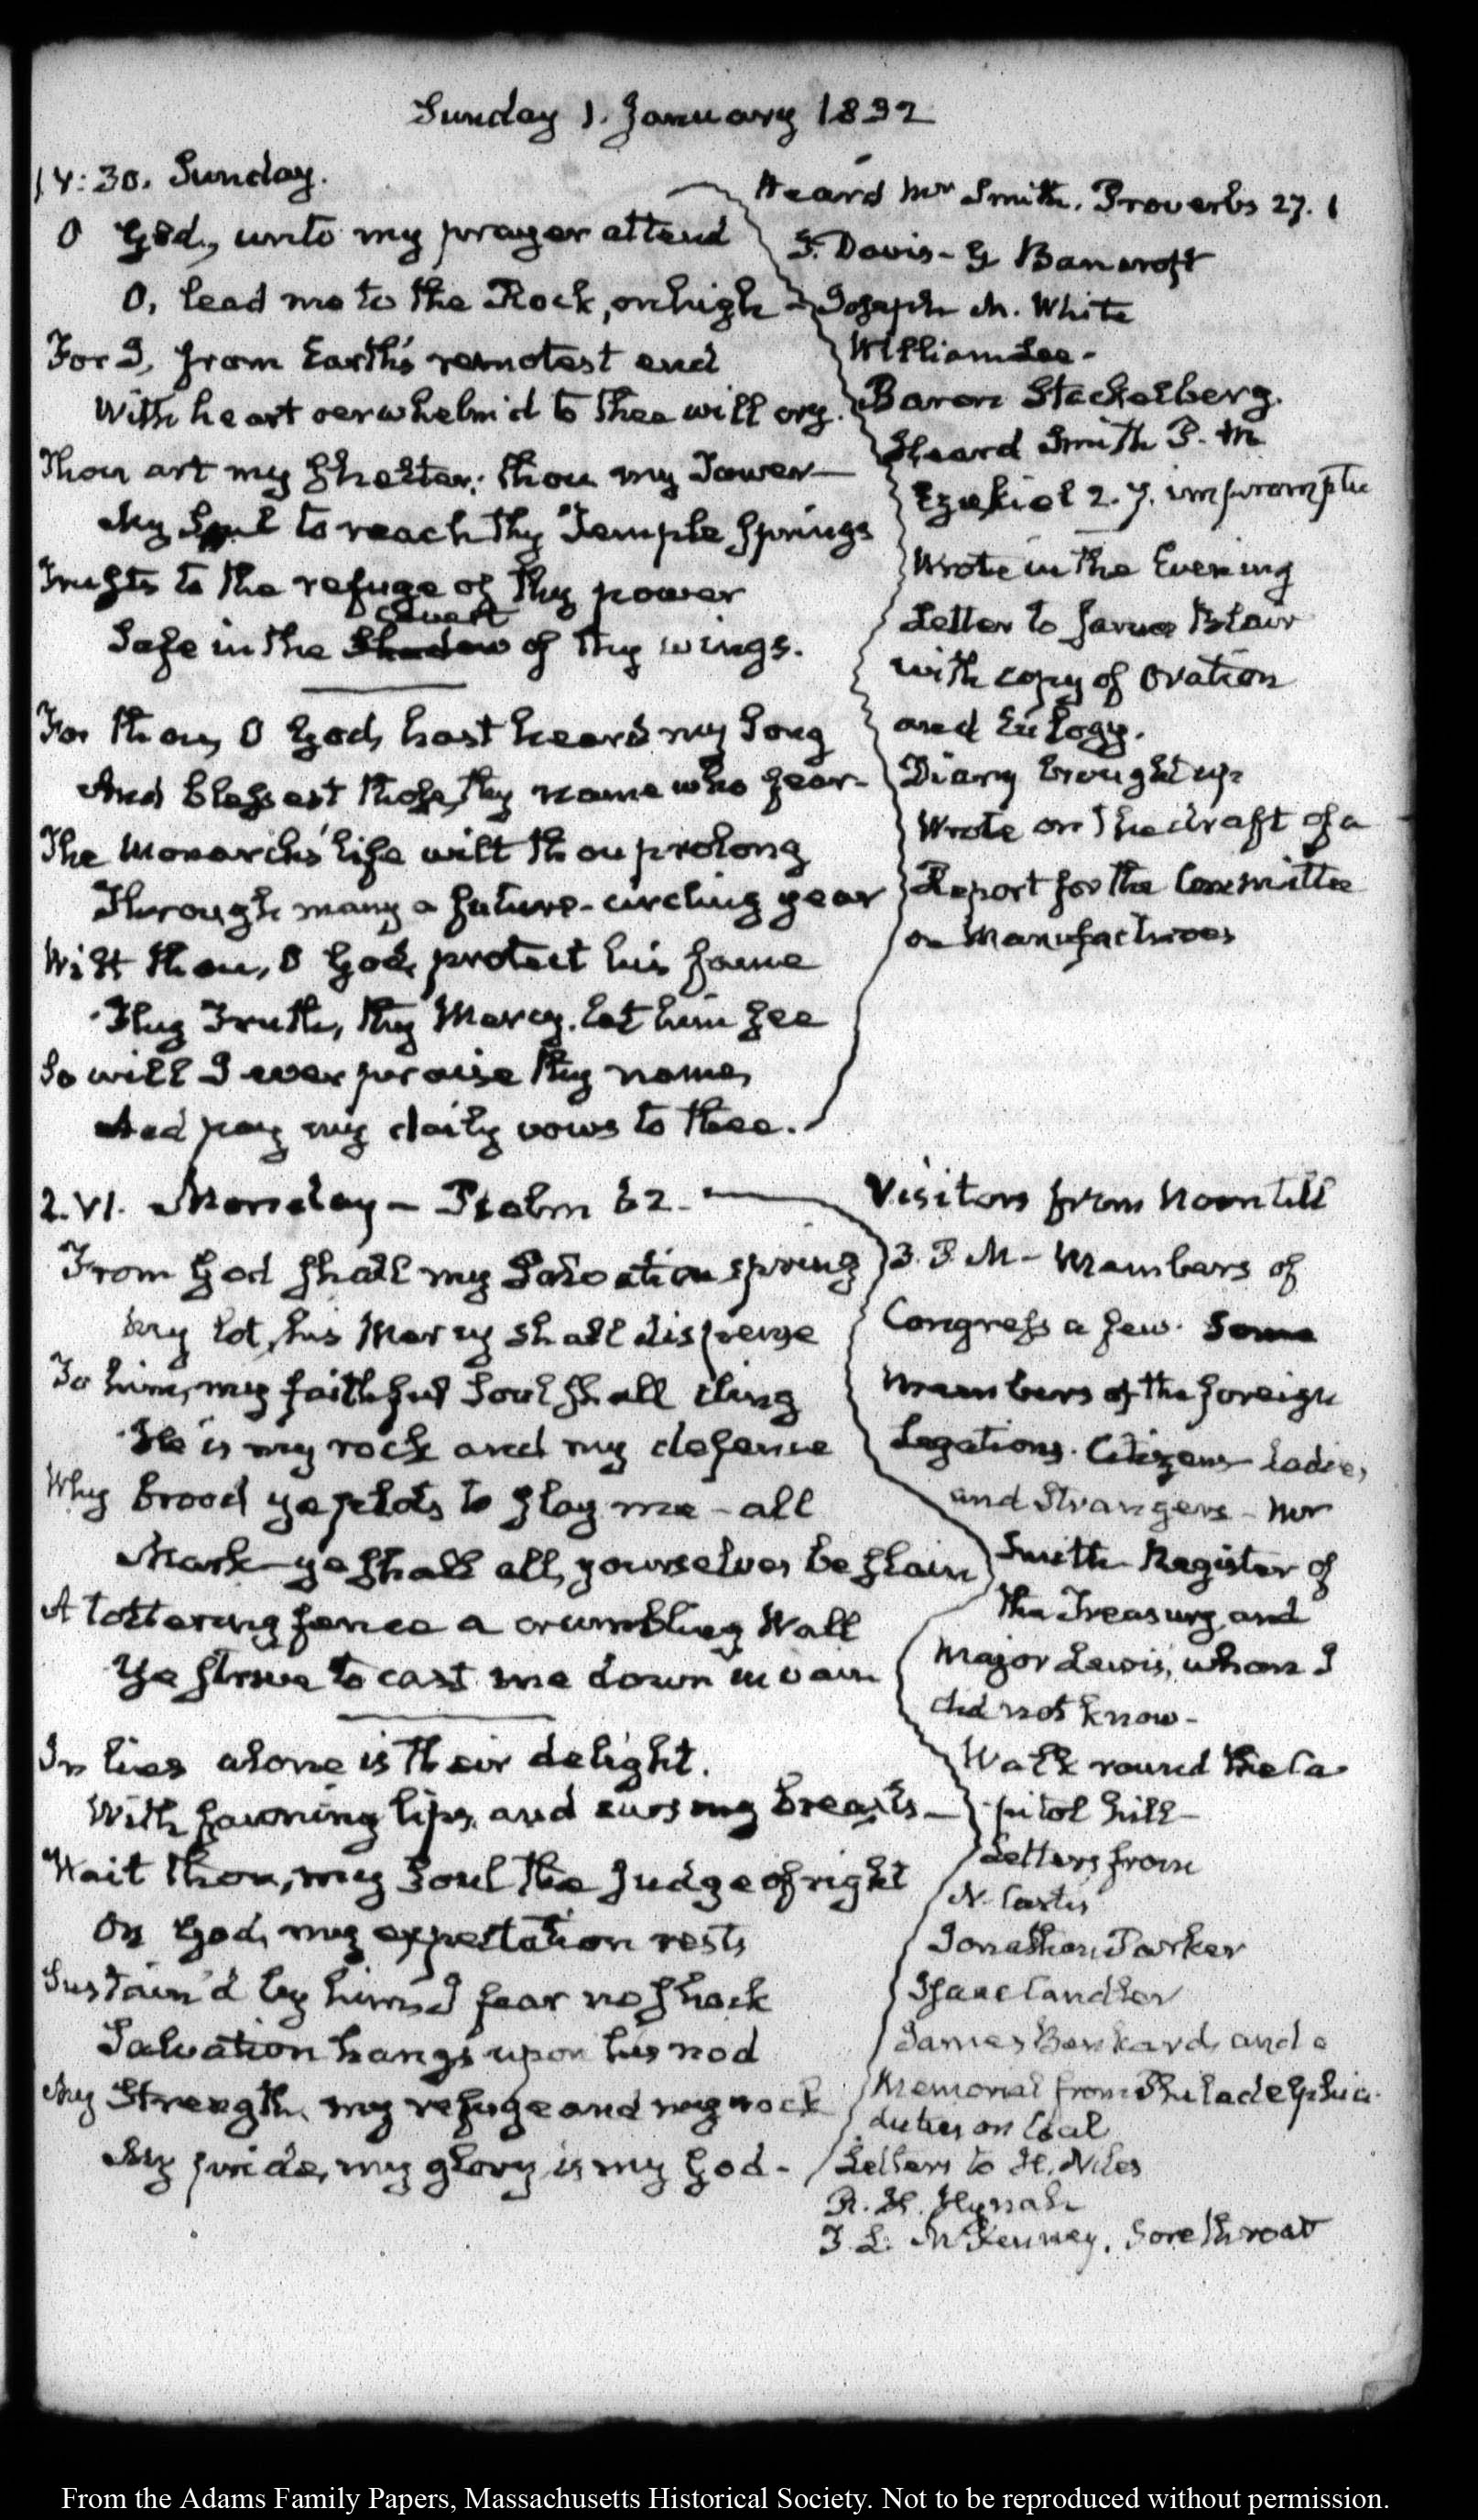 Sunday 1. January 1832
14:30. Sunday.
O God, unto my prayer attend
O, lead me to the Rock, on high
For I, from Earth's remotest end
With heart oerwhelm'd to thee will cry.
Thou art my shelter; thou my Tower—
My Soul to reach thy Temple springs
Trusts to the refuge of thy power
Covert
Safe in the Shadow of thy wings.
For thou, O God, hast heard my Song
And blessest those, thy name who fear—
The Monarch's life wilt thou prolong
Through many a future-circling year
Wilt thou, O God, protect his fame
Thy Truth, thy Mercy, let him see
So will I ever praise thy name,
And pay my daily vows to thee.
Heard Mr Smith. Proverbs 27. 1
J. Davis - G Bancroft
Joseph M. White
William Lee -
Baron Stackelberg.
Heard Smith P. M
Ezekiel 2. 7. impromptu
Wrote in the Evening
Letter to James Blair
with copy of Oration
and Eulogy.
Diary brought up
Wrote on the draft of a
Report for the Committee
on Manufactures
2. VI. Monday - Psalm 62.
From God shall my Salvation spring
My lot, his Mercy shall dispense
To him, my faithful Soul shall cling
He is my rock and my defence
Why brood ye plots to slay me - all
Mark - ye shall all, yourselves be slain
A tottering fence a crumbling Wall
Ye strive to cast me down in vain
In lies alone is their delight.
With fawning lips, and cursing breasts—
Wait thou, my Soul the Judge of right
On God, my expectation rests
Sustain'd by him I fear no shock
Salvation hangs upon his nod
My Strength, my refuge and my rock
My pride, my glory is my God -
Visitors from Noon till
3. P. M - Members of
Congress a few. Some
Members of the foreign
Legations. Citizens Ladies,
and Strangers - Mr
Smith Register of
the Treasury and
Major Lewis, whom I
did not know -
Walk round the Ca
pitol hill -
Letters from
N.
Jonathan Parker
Isaac Candler
James Benkard, and a
Memorial from Philadelphia.
duties on Coal
Letters to H. Niles
R. H.
T. L. McKenney. Sore throat
From the Adams Family Papers, Massachusetts Historical Society. Not to be reproduced without permission.